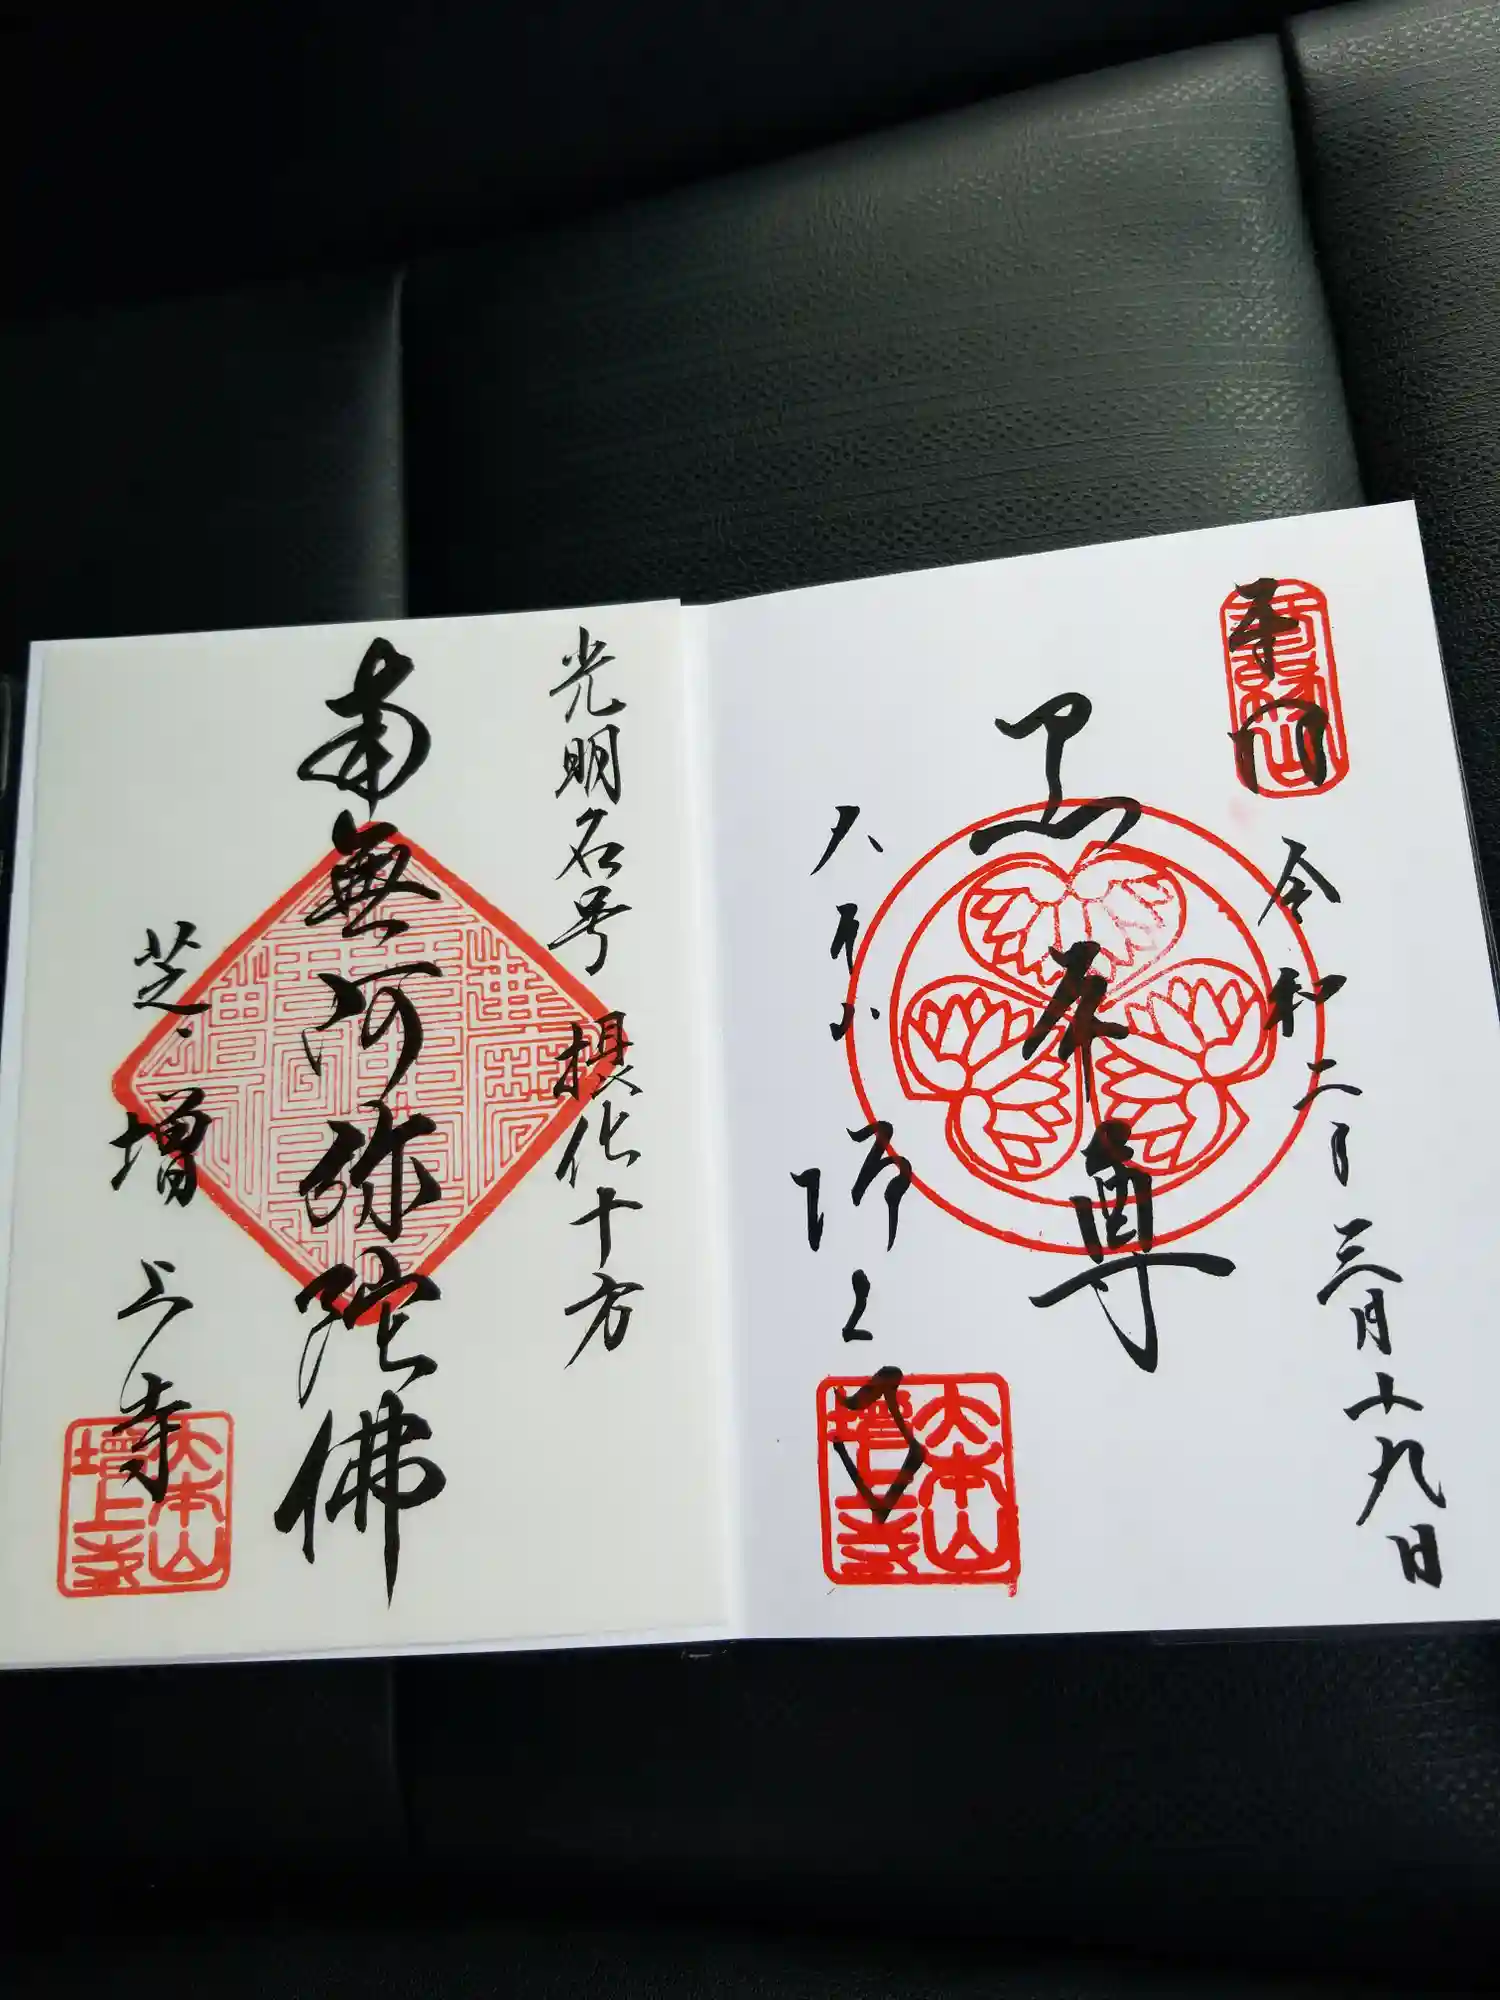 奉拝
令和二年三月十九日
黒本尊
大本山
増上寺
光明名号 摂化十方
南無阿弥陀佛
芝・増上寺
大本山
増上寺